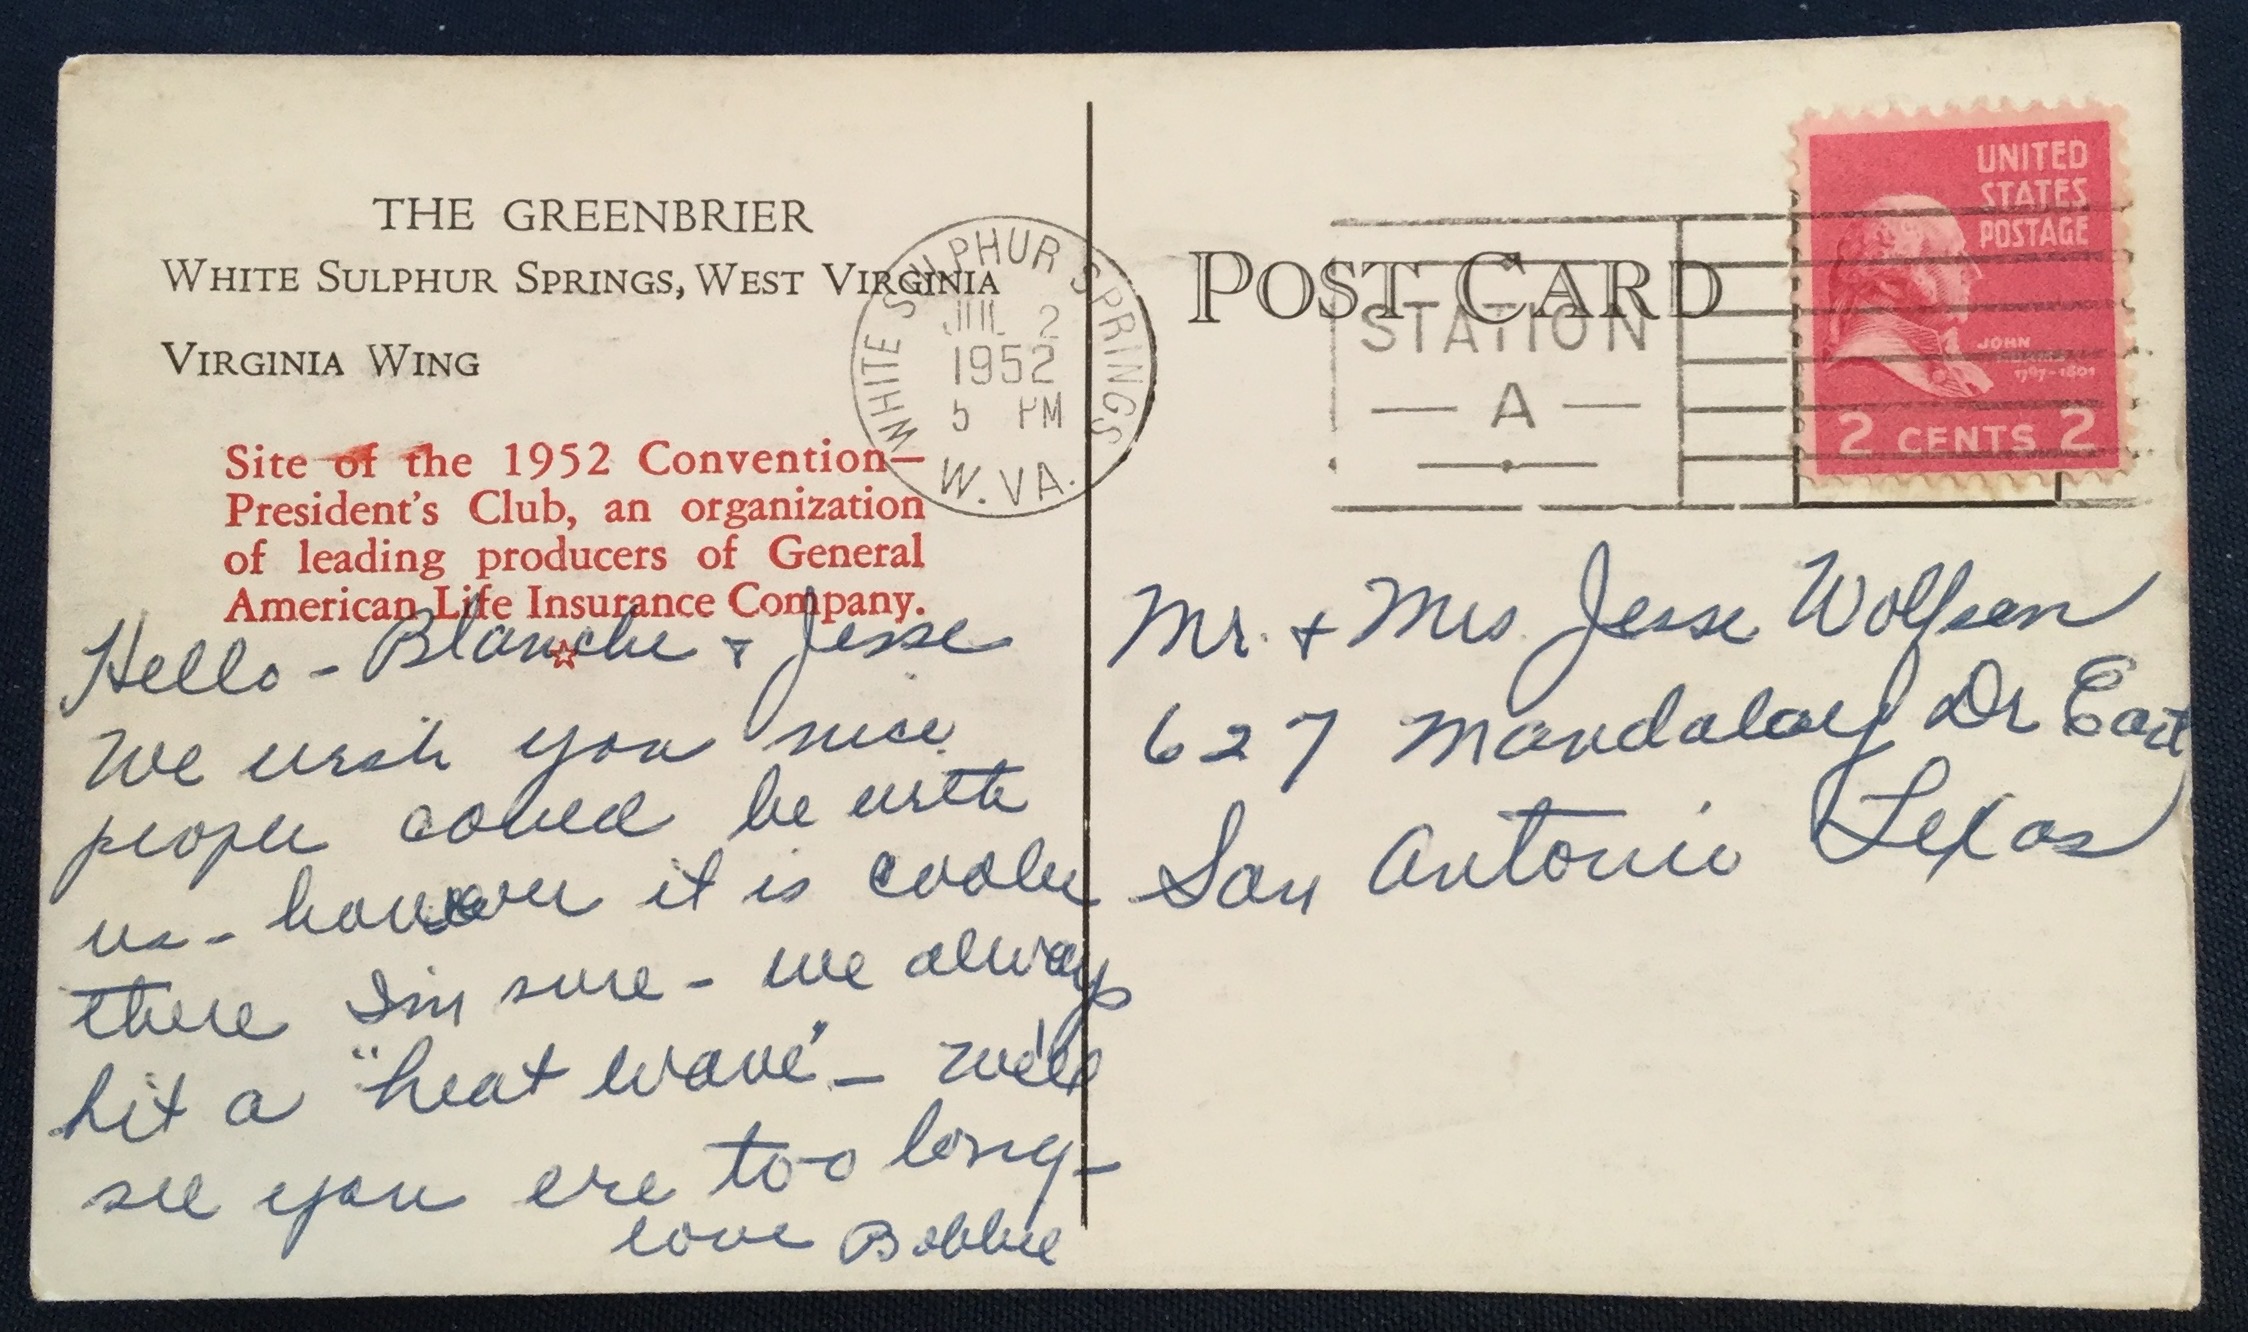 THE GREENBRIER
WHITE SULPHUR SPRINGS, WEST VIRGINIA
VIRGINIA WING
Site of the 1952 Convention—
President's Club, an organization
of leading producers of General
American Life Insurance Company.
Hello - Blanche + Jesse
We wish you nice
people could be with
us - however it is cooler
there I'm sure - we always
hit a "heat wave" - We'll
see you ere too long -
love Bobbie
WHITE SULPHUR SPRINGS
JUL 2
1952
5 PM
W. VA.
POST CARD
STATION
— A —
UNITED
STATES
POSTAGE
JOHN
1797-1801
2 CENTS 2
Mr. + Mrs. Jesse Wolfson
627 Mandalay Dr East
San Antonio Texas